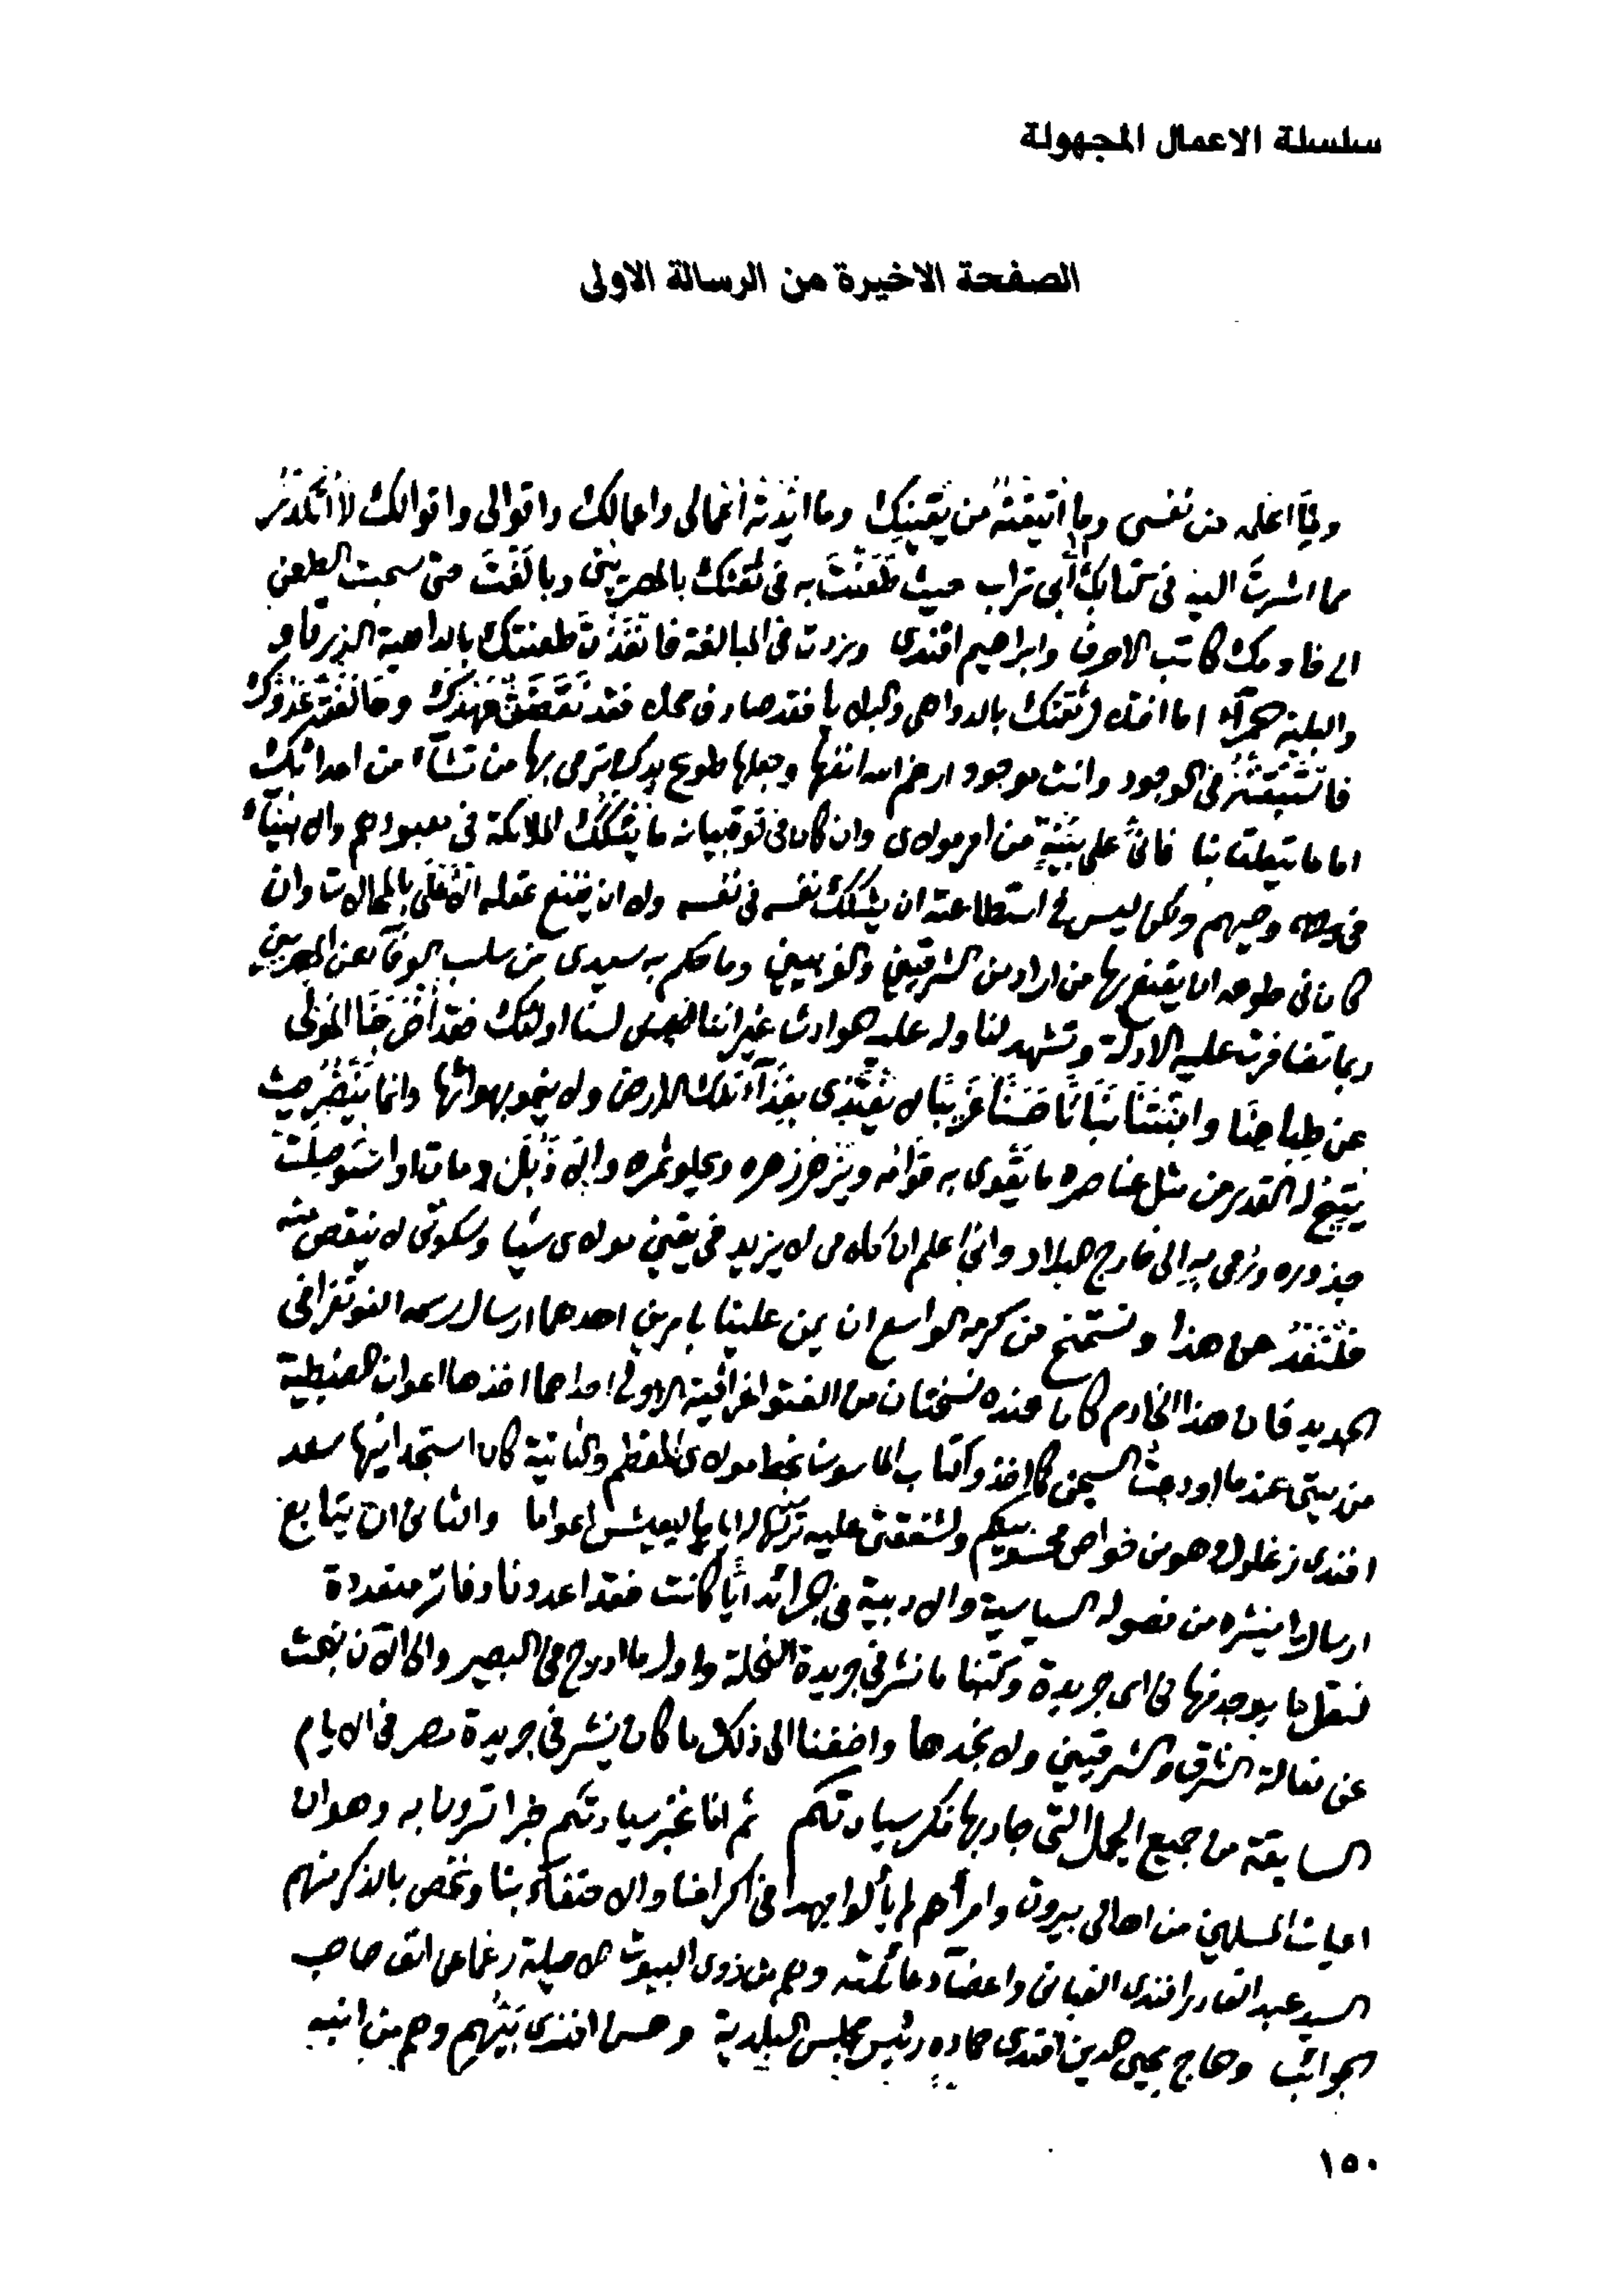 سلسلة الاعمال المجهولة
الصفحة الاخيرة من الرسالة الاولى
من نفسى وما من يقينك وما افعالى واعمالك واقوالى واقوالك لا
مما اشرت اليه فى كتابك أبى تراب حيث طَعَنْتَ به فى ثقتك بالمصريين وبالَغْتَ حتى سحبت الطعن
الى خادمك كاتب الاحرف وابراهيم افندى وزدت فى المبالغة طعنتك بالداهية الزرقاء و
والبلية اما ثقتك بالدواهى والبلايا فقد صادف محله فقد وخانفته
فى الوجود وانت موجود ارغم الله انفها وجعلها طوع يدك ترمى بها من تشآء من اعدائك
اما ما يتعلق بنا فانى على بيّنةٍ من امر مولاى وان كان فى قوة بيانه ما يشكك الملائكة فى معبودهم والانبيآء
فى وحيهم ولكن ليس فى استطاعته ان يشكك نفسه فى نفسه ولا ان يقنع عقله الاعلى بالمحالات وان
كان فى طوعه ان يقنع بها من اراد من الشرقيين والغربيين وما حكم به سيدى من سلب الوفآء عن المصريين
ربما تضافرت عليه الادلة وتشهد لنا وله عليه حوادث غير اننا لسنا اولئك فقد اخرجنا المولى
عن طباعنا وانبتنا نباتًا حسنًا غريبًا لا يغتذى بغذآء تلك الارض ولا ينمو بهوائها وانما حيث
يتيح له القدر من مثل عناصره ما يقوى به قوائمه ويزهر زهره ويحلو ثمره والا ذَبَل ومات او
جذوره ورمى به الى خارج البلاد وانى اعلم ان كلامى لا يزيد فى يقين مولاى شيئا وسكوتى لا ينقص منه
فلنعد عن هذا ونستمنح من كرمه الواسع ان يمن علينا بامرين احدهما ارسال رسمه الفوتغرافى
الجديد فان هذا الخادم كان عنده نسختان من الفتوغرافية الاولى احداهما اخذها اعوان الضبطية
من بيتى عندما اودعت السجن كما اخذوا كتاب الماسون بخط مولاى المعظم والثانية كان استجدانيها سعد
افندى زغلول وهو من خواص محسوبيكم ولشفقتى عليه تركتها له والثانى ان يتابع
ارسال ما ينشره من فصوله السياسية والادبية فى جرائد ايًّا كانت فقد اعددنا دفاتر متعددة
لنقل ما يوجد منها فى اى جريدة وكتبنا ما نشر فى جريدة النحلة واول ما ادرج فى البصير والى الآن نبحث
عن مقالة الشرق والشرقيين ولا نجدها واضفنا الى ذلك ما كان ينشر فى جريدة مصر فى الايام
السابقة من جميع الجمل التى جاد بها فكر سيادتكم ثم انا نخبر سيادتكم خبرا تسرون به وهو ان
اعيان المسلمين من اهالى بيروت وامرآهم لم يألوا جهدا فى اكرامنا والاحتفاء بنا ونخص بالذكر منهم
السيد عبد القادر افندى القبانى واعضآء عائلته وهم من ذوى البيوت الاصيلة رغما عن انف صاحب
الجوائب وحاج محيى الدين افندى حماده رئيس مجلس البلدية وحسن افندى بيهم وهم من انبه
١٥٠